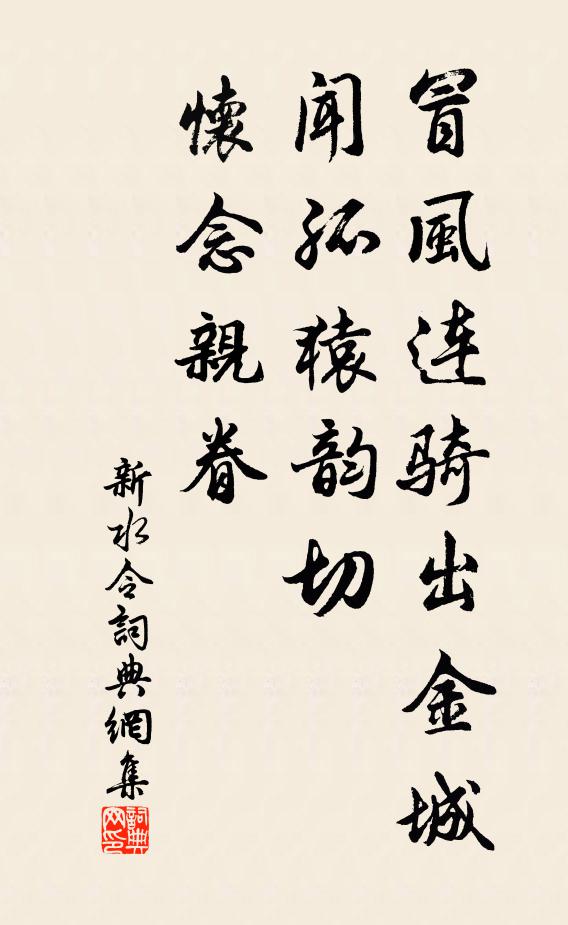 冒風連騎出金城
聞孤猿韵切
懷念親眷
新水令詞典網集
詞典
网印